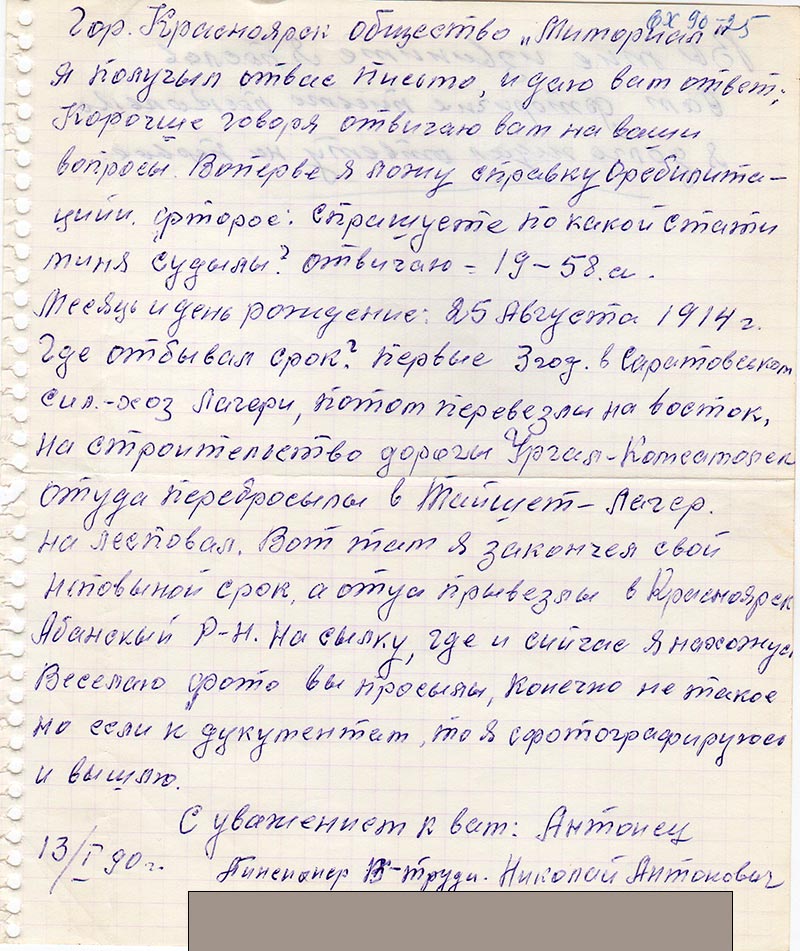 ОХ 90-25
Гор. Красноярск общество „Миториал"
Я получыл отвас письто, и даю вам ответ;
Корочше говоря отвичаю вам на ваши
вопросы. Воперве я ложу справку Оребилита-
ции. фторое: спрашуете по какой стати
миня судылы? отвичаю - 19-58.а.
Месяць и день рождение: 25 Августа 1914 г.
Где отбывал срок? первые 3 год. в Саратовськом
сил.-хоз Лагери, потом перевезлы на восток,
на строительство дорогы Ургал-Комсамолск
отуда перебросылы в Тайшет-Лагер.
на лесповал. Вот там я закончел свой
неповыной срок, а отуа прывезлы в Красноярск
Абанскый Р-н. На сылку, где и сийчас я нахожусь
Веселаю фото вы просылы, конечно не такое
но если к дукументам, то я сфотографируюсь
и вышлю.
С уважением к вам: Антонец
13/I 90 г.
Пинсионер В-труда. Николай Антонович